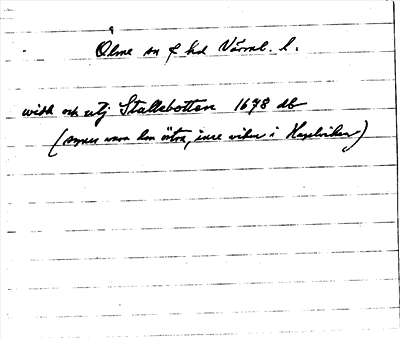 Ölme sn o hd Värml. l.
widh och utj Stallebotten 1678 db
(synes vara den östra, inre viken i Hagelviken)